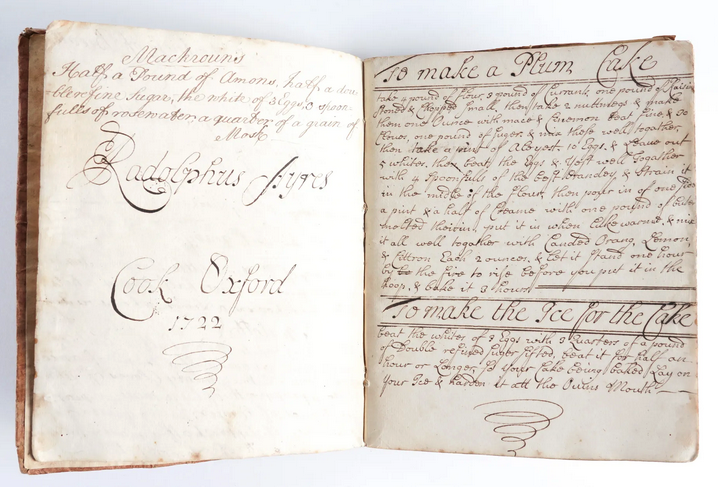 Mackroons
Half a Pound of Amons, half a dou-
ble refine Sugr, the white of 3 Eggs, 2 spoon-
fulls of rosewater, a quarter of a grain of
Most
Radolphus Ayres
Cook Oxford
1722
To make a Plum Cake
take 4 pound of flour, 3 pound of Currants, one pound of Raisins
stoned & chopped small, then take 2 nuttmegs & make
them one Ounce with mace & Cinemon beat fine & 20
Cloves, one pound of Suger & mix these well together,
then take a pint of Aleyest 10 Eggs, & leave out
5 whites, then beat the Eggs & Yest well together
with 4 spoonfulls of the best Brandey & strain it
in the midle of the flour, then pour in of one
a pint & a half of Creame with one pound of buter
melted therein, put it in when Lukewarme, & mix
it all well together with Canded Orang, Lemon,
& Cittron Each 2 ounces, & let it stand one hour
by the fire to rise before you put it in the
Hoop, & bake it 3 hours
To make the Ice for the Cake
beat the whites of 3 Eggs with 3 Quarters of a pound
of Double refined suger sifted, beat it for half an
hour or Longer, so your Cake being baked Lay on
your Ice & harden it att the Ovens Mouth